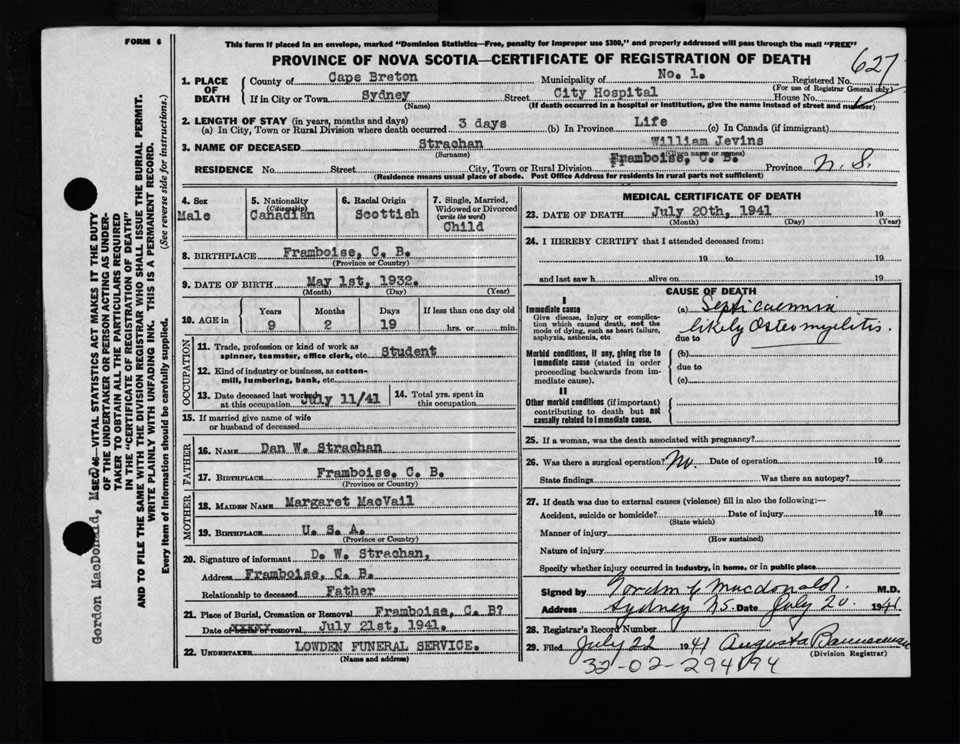 FORM 6
This form if placed in an envelope, marked "Dominion Statistics—Free, penalty for improper use $300," and properly addressed will pass through the mail "FREE"
PROVINCE OF NOVA SCOTIA—CERTIFICATE OF REGISTRATION OF DEATH
627
1. PLACE OF DEATH
County of Cape Breton Municipality of No. 1. Registered No.
(For use of Registrar General only)
If in City or Town Sydney Street City Hospital House No.
(Name) (If death occurred in a hospital or institution, give the name instead of street and number)
2. LENGTH OF STAY (in years, months and days)
(a) In City, Town or Rural Division where death occurred 3 days (b) In Province Life (c) In Canada (if immigrant)
3. NAME OF DECEASED Strachan William Jevins
(Surname) (Given name or names)
RESIDENCE No. Street City, Town or Rural Division Framboise, C. B. Province N.S.
(Residence means usual place of abode. Post Office Address for residents in rural parts not sufficient)
4. Sex
Male
5. Nationality
(Citizenship)
Canadian
6. Racial Origin
Scottish
7. Single, Married, Widowed or Divorced
(write the word)
Child
8. BIRTHPLACE Framboise, C. B.
(Province or Country)
9. DATE OF BIRTH May 1st, 1932.
(Month) (Day) (Year)
10. AGE in Years Months Days If less than one day old
9 2 19 hrs. or min.
OCCUPATION
11. Trade, profession or kind of work as
spinner, teamster, office clerk, etc. Student
12. Kind of industry or business, as cotton-
mill, lumbering, bank, etc.
13. Date deceased last worked
at this occupation July 11/41
14. Total yrs. spent in
this occupation
15. If married give name of wife
or husband of deceased
FATHER
16. NAME Dan W. Strachan
17. BIRTHPLACE Framboise. C. B.
MOTHER
18. MAIDEN NAME Margaret MacVail
19. BIRTHPLACE U. S. A.
(Province or Country)
20. Signature of informant D. W. Strachan,
Address Framboise, C. B.
Relationship to deceased Father
21. Place of Burial, Cremation or Removal Framboise, C. B?
Date of burial or removal July 21st, 1941.
22. UNDERTAKER LOWDEN FUNERAL SERVICE.
(Name and address)
MEDICAL CERTIFICATE OF DEATH
23. DATE OF DEATH July 20th, 1941 19
(Month) (Day) (Year)
24. I HEREBY CERTIFY that I attended deceased from:
19 to 19
and last saw h alive on 19
CAUSE OF DEATH
I
Immediate cause
Give disease, injury or complica-
tion which caused death, not the
mode of dying, such as heart failure,
asphyxia, asthenia, etc.
(a) Septicaemia
likely Osteomyelitis.
due to
Morbid conditions, if any, giving rise to
immediate cause (stated in order
proceeding backwards from im-
mediate cause).
(b)
due to
(c)
II
Other morbid conditions (if important)
contributing to death but not
causally related to immediate cause.
25. If a woman, was the death associated with pregnancy?
26. Was there a surgical operation? No. Date of operation 19
State findings Was there an autopsy?
27. If death was due to external causes (violence) fill in also the following:—
Accident, suicide or homicide? Date of injury 19
(State which)
Manner of injury
(How sustained)
Nature of injury
Specify whether injury occurred in industry, in home, or in public place
Signed by Gordon G Macdonald. M.D.
Address Sydney NS. Date July 20. 1941.
28. Registrar's Record Number
29. Filed July 22 1941 Augusta Bannerman
(Division Registrar)
32-02-294194
Gordon MacDonald, M
SEC. 46—VITAL STATISTICS ACT MAKES IT THE DUTY
OF THE UNDERTAKER OR PERSON ACTING AS UNDER-
TAKER TO OBTAIN ALL THE PARTICULARS REQUIRED
IN THE "CERTIFICATE OF REGISTRATION OF DEATH"
AND TO FILE THE SAME WITH THE DIVISION REGISTRAR WHO SHALL ISSUE THE BURIAL PERMIT.
WRITE PLAINLY WITH UNFADING INK. THIS IS A PERMANENT RECORD.
Every item of information should be carefully supplied. (See reverse side for instructions.)